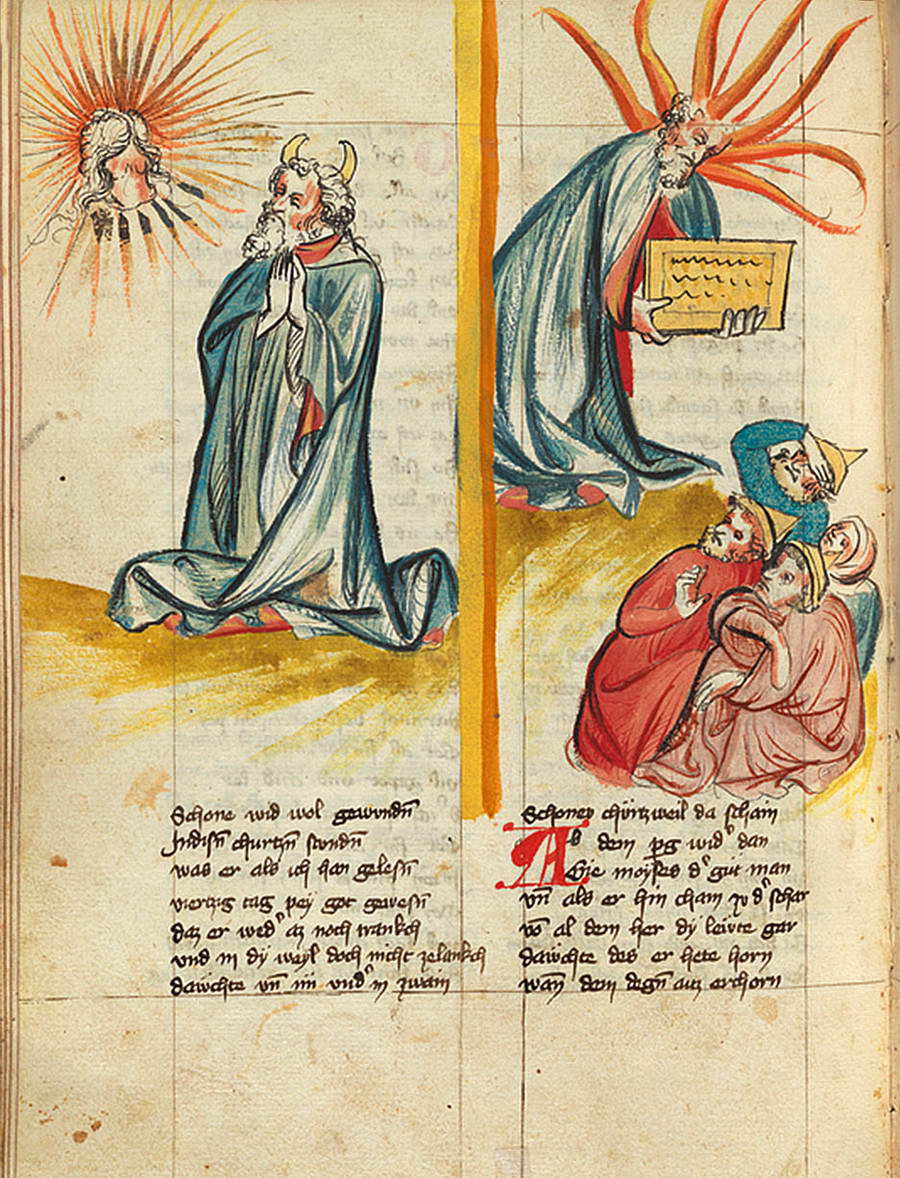 Schone wid wol gewundn̄
Jndisn̄ churtzn̄ stundn̄
was er als ich han gelesn̄
viertzig tag pey got gewesn̄
daz er wed' az noch trankch
vnd in dÿ weyl doch nicht ze lankch
dawchte vn̄ im vnd' in zwain
Schoner churtzweil da schain
Ab dem pg wid' dan
Gie moÿses d' gut man
vn̄ als er hin cham zv d' schar
vō al dem her dÿ lewte gar
dawchte des er hete horn
wan̄ dem degn̄ auz erchorn